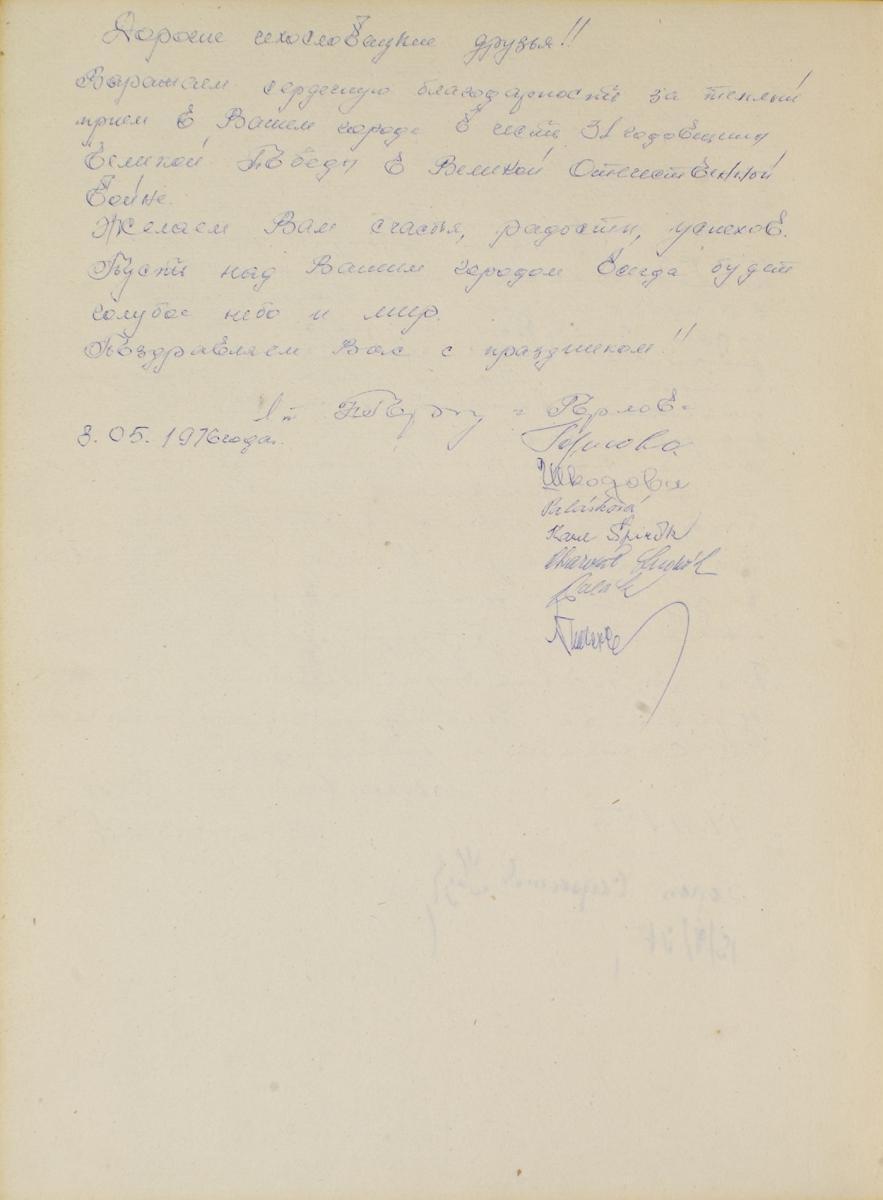 Дорогие чехословацкие друзья!!
Выражаем сердечную благодарность за теплый
прием в Вашем городе в честь 31 годовщины
Великой Победы в Великой Отечественной
Войне.
Желаем Вам счастья, радости, успехов.
Пусть над Вашим городом всегда будет
голубое небо и мир.
Поздравляем Вас с праздником!!
3.05.1976 года.
Шкодови
Karel